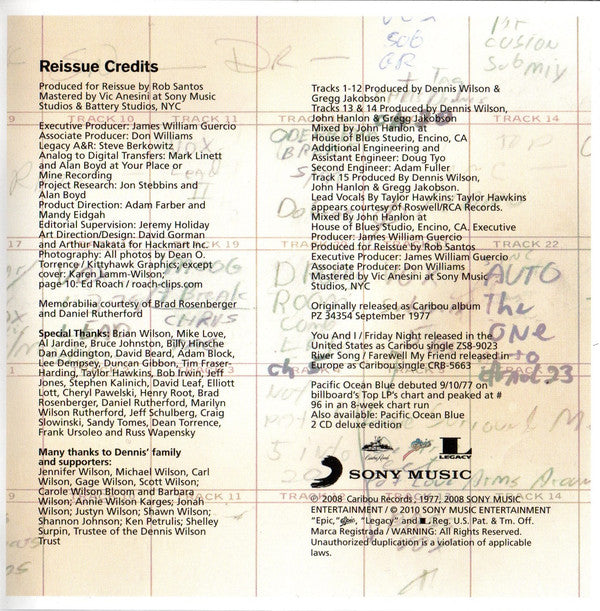 Reissue Credits
Produced for Reissue by Rob Santos
Mastered by Vic Anesini at Sony Music
Studios & Battery Studios, NYC
Executive Producer: James William Guercio
Associate Producer: Don Williams
Legacy A&R: Steve Berkowitz
Analog to Digital Transfers: Mark Linett
and Alan Boyd at Your Place or
Mine Recording
Project Research: Jon Stebbins and
Alan Boyd
Product Direction: Adam Farber and
Mandy Eidgah
Editorial Supervision: Jeremy Holiday
Art Direction/Design: David Gorman
and Arthur Nakata for Hackmart Inc.
Photography: All photos by Dean O.
Torrence / Kittyhawk Graphics; except
cover: Karen Lamm-Wilson;
page 10: Ed Roach / roach-clips.com
Memorabilia courtesy of Brad Rosenberger
and Daniel Rutherford
Special Thanks: Brian Wilson, Mike Love,
Al Jardine, Bruce Johnston, Billy Hinsche
Dan Addington, David Beard, Adam Block,
Lee Dempsey, Duncan Gibbon, Tim Fraser-
Harding, Taylor Hawkins, Bob Irwin Jeff
Jones, Stephen Kalinich, David Leaf, Elliott
Lott, Cheryl Pawelski, Henry Root, Brad
Rosenberger, Daniel Rutherford, Marilyn
Wilson Rutherford, Jeff Schulberg, Craig
Slowinski, Sandy Tomes, Dean Torrence,
Frank Ursoleo and Russ Wapensky
Many thanks to Dennis' family
and supporters:
Jennifer Wilson, Michael Wilson, Carl
Wilson, Gage Wilson, Scott Wilson;
Carole Wilson Bloom and Barbara
Wilson; Annie Wilson Karges; Jonah
Wilson; Justyn Wilson; Shawn Wilson;
Shannon Johnson; Ken Petrulis; Shelley
Surpin, Trustee of the Dennis Wilson
Trust
Tracks 1-12 Produced by Dennis Wilson &
Gregg Jakobson
Tracks 13 & 14 Produced by Dennis Wilson,
John Hanlon & Gregg Jakobson
Mixed by John Hanlon at
House of Blues Studio, Encino, CA
Additional Engineering and
Assistant Engineer: Doug Tyo
Second Engineer: Adam Fuller
Track 15 Produced By Dennis Wilson,
John Hanlon & Gregg Jakobson.
Lead Vocals By Taylor Hawkins; Taylor Hawkins
appears courtesy of Roswell/RCA Records.
Mixed By John Hanlon at
House of Blues Studio, Encino, CA. Executive
Producer: James William Guercio
Produced for Reissue by Rob Santos
Executive Producer: James William Guercio
Associate Producer: Don Williams
Mastered by Vic Anesini at Sony Music
Studios, NYC
Originally released as Caribou album
PZ 34354 September 1977
You And I / Friday Night released in the
United States as Caribou single ZS8-9023
River Song / Farewell My Friend released in
Europe as Caribou single CRB-5663
Pacific Ocean Blue debuted 9/10/77 on
billboard's Top LP's chart and peaked at #
96 in an 8-week chart run
Also available: Pacific Ocean Blue
2 CD deluxe edition
LEGACY
SONY MUSIC
℗ 2008 Caribou Records , 1977, 2008 SONY MUSIC
ENTERTAINMENT / ℗ 2010 SONY MUSIC ENTERTAINMENT
"Epic," "Legacy" and Reg. U.S. Pat. & Tm. Off.
Marca Registrada / WARNING: All Rights Reserved.
Unauthorized duplication is a violation of applicable
laws.
DR
SUB
GR
1st
FUSION
Sub mix
TRACK 10
TRACK 11
TRACK 14
TRACK 19
TRACK 22
AUTO
The
ONE
so
not 23
TRACK 11
TRACK 12
TRACK 13
TRACK 14